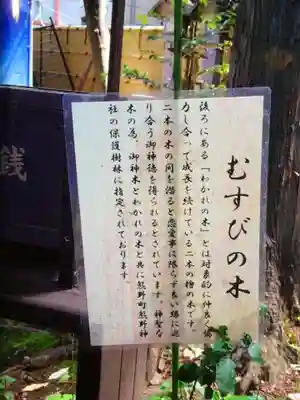 むすびの木
後ろにある「わかれの木」とは対象的に仲良く協
力し合って成長を続けている二本の檜の木です。
二本の木の間を潜ると恋愛事に限らず良い縁に巡
り合う御神徳を得られるとされています。神聖な
木の為、御神木とわかれの木と共に熊野町熊野神
社の保護樹林に指定されております。
銭